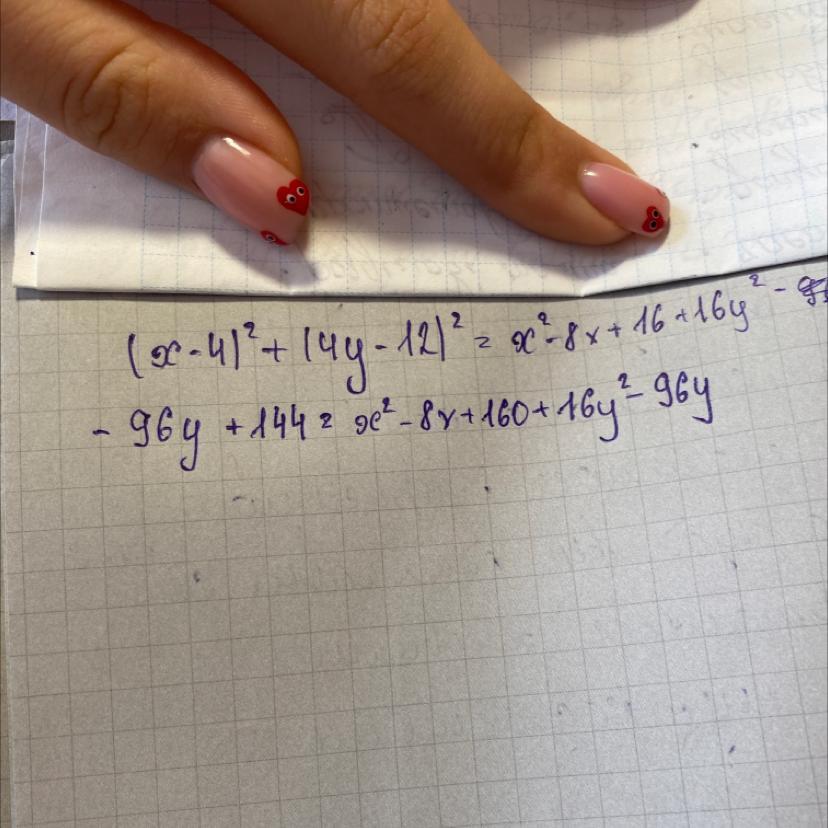 (x - 4)² + (4y - 12)² = x² - 8x + 16 + 16y² -
- 96y + 144 = x² - 8x + 160 + 16y² - 96y